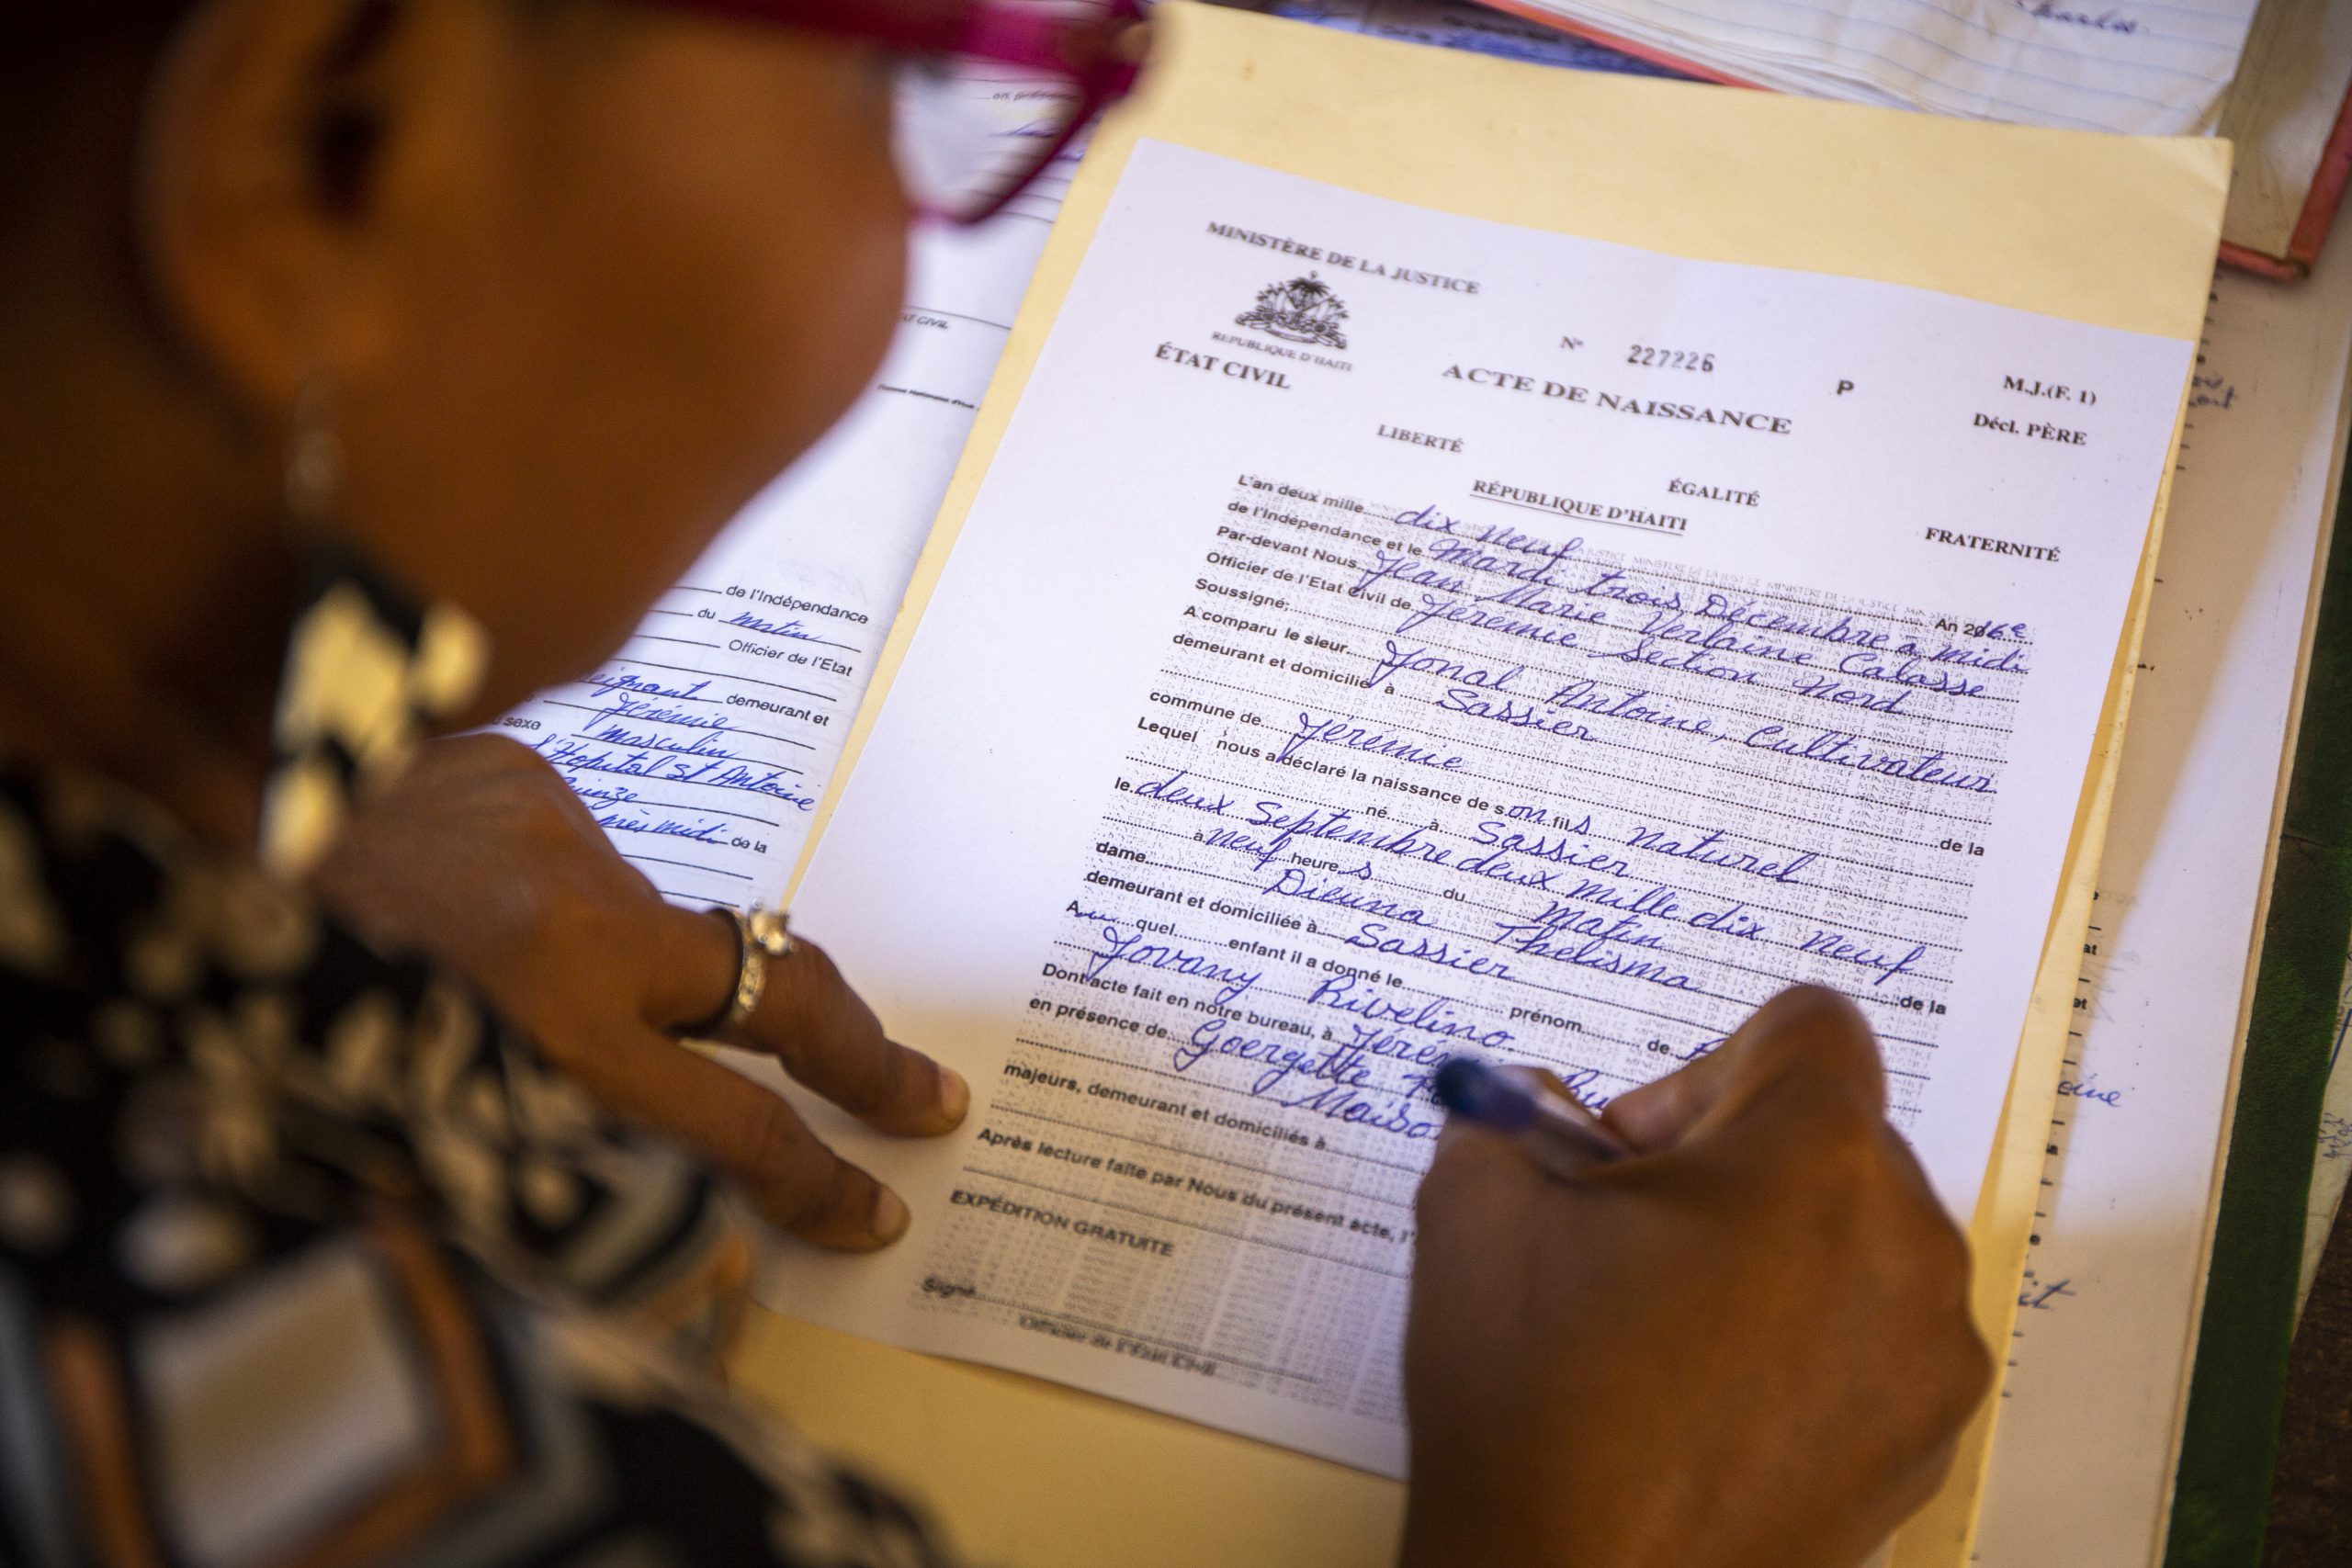 Charles
MINISTÈRE DE LA JUSTICE
REPUBLIQUE D'HAITI
ÉTAT CIVIL
N° 227226 P M.J.(F. 1)
ACTE DE NAISSANCE Décl. PÈRE
LIBERTÉ ÉGALITÉ FRATERNITÉ
RÉPUBLIQUE D'HAITI
L'an deux mille dix neuf An 216e
de l'Indépendance et le Mardi trois Décembre a midi
Par-devant Nous Jean Marie Verlaine Calasse
Officier de l'Etat Civil de Jeremie Section Nord
Soussigné:
A comparu le sieur Jonal Antoine, Cultivateur
demeurant et domicilié à Sassier
commune de Jeremie
Lequel nous a déclaré la naissance de son fils naturel de la
né à Sassier
le deux Septembre deux mille dix neuf
à neuf heures du Matin
dame Dieuna Thelisma de la
demeurant et domiciliée à Sassier
Au quel enfant il a donné le prénom de
Jovany Rivelino
Dont acte fait en notre bureau, à
en présence de Goergette
majeurs, demeurant et domiciliés à
Après lecture faite par Nous du présent acte, l'
EXPÉDITION GRATUITE
Signé
Officier de l'État Civil
AT CIVIL
de l'Indépendance
du matin
Officier de l'Etat
demeurant et
Jérémie
sexe masculin
l'Hopital St Antoine
midi de la